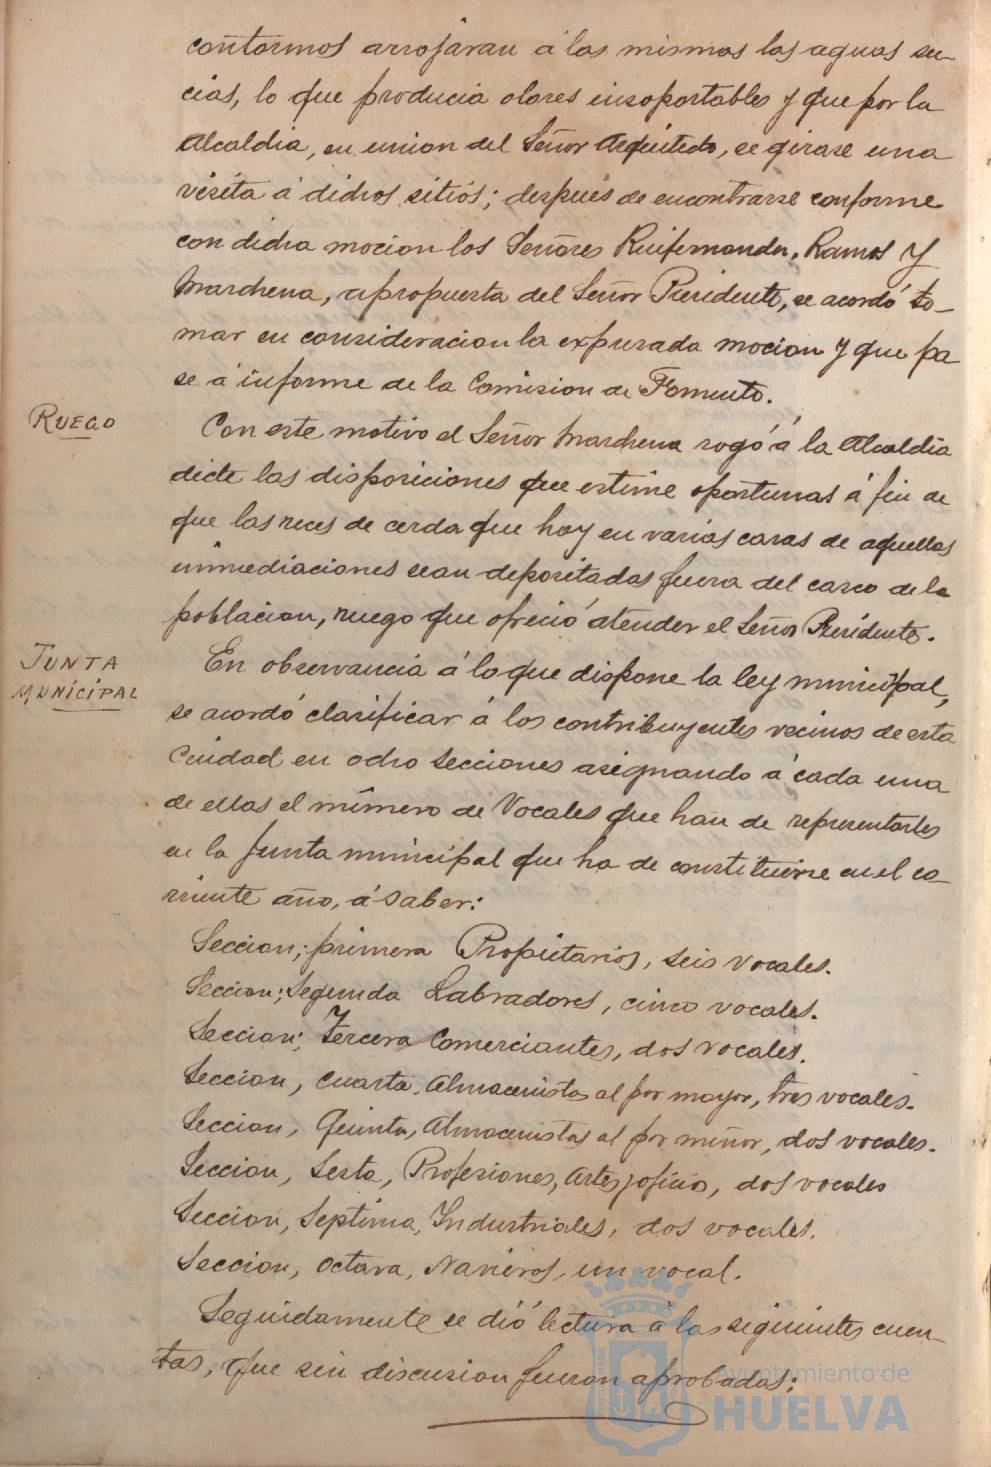 contornos arrojaran á las mismas las aguas su-
cias, lo que producia olores insoportables y que por la
Alcaldia, en union del Señor Arquitecto, se girase una
visita á dichos sitios; despues de encontrarse conforme
con dicha mocion los Señores Ruifernandez, Ramos y
Marchena, apropuesta del Señor Presidente, se acordó to-
mar en consideracion la expresada mocion y que pa
se á informe de la Comision de Fomento.
RUEGO
Con este motivo el Señor Marchena rogó á la Alcaldia
dicte las disposiciones que estime oportunas á fin de
que las reces de cerda que hay en varias casas de aquellas
inmediaciones sean depositadas fuera del casco de la
poblacion, ruego que ofreció atender el Señor Presidente.
JUNTA
MUNICIPAL
En observancia á lo que dispone la ley municipal,
se acordó clasificar á los contribuyentes vecinos de esta
Ciudad en ocho secciones asignando á cada una
de ellas el número de Vocales que han de representarles
en la Junta municipal que ha de constituirse en el co-
rriente año, á saber:
Seccion; primera Propietarios, seis vocales.
Seccion; Segunda Labradores, cinco vocales.
Seccion; Tercera Comerciantes, dos vocales.
Seccion, Cuarta, Almacenistas al por mayor, tres vocales.
Seccion, Quinta, Almacenistas al por menor, dos vocales.
Seccion, Sesta, Profesiones, Artes y oficios, dos vocales
Seccion, Septima, Industriales, dos vocales.
Seccion, Octava, Navieros, un vocal.
Seguidamente se dió lectura á las siguientes cuen-
tas, que sin discusion fueron aprobadas:
Ayuntamiento de
HUELVA